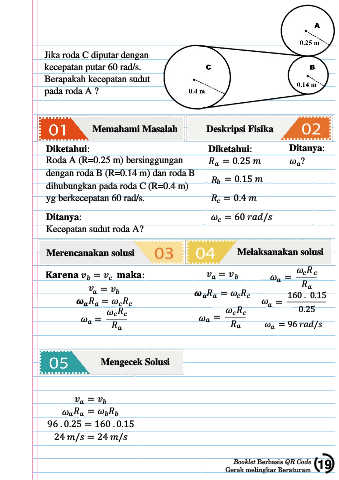 Jika roda C diputar dengan
kecepatan putar 60 rad/s.
Berapakah kecepatan sudut
pada roda A ?
A
0.25 m
C
0.4 m
B
0.14 m
01 Memahami Masalah
Deskripsi Fisika 02
Diketahui:
Roda A (R=0.25 m) bersinggungan
dengan roda B (R=0.14 m) dan roda B
dihubungkan pada roda C (R=0.4 m)
yg berkecepatan 60 rad/s.
Ditanya:
Kecepatan sudut roda A?
Diketahui:
Rₐ = 0.25 m
R_b = 0.15 m
R_c = 0.4 m
ω_c = 60 rad/s
Ditanya:
ωₐ?
Merencanakan solusi 03
04 Melaksanakan solusi
Karena v_b = v_c maka:
vₐ = v_b
ωₐRₐ = ω_cR_c
ωₐ = ω_cR_c / Rₐ
vₐ = v_b
ωₐRₐ = ω_cR_c
ωₐ = ω_cR_c / Rₐ
ωₐ = ω_cR_c / Rₐ
ωₐ = 160 . 0.15 / 0.25
ωₐ = 96 rad/s
05 Mengecek Solusi
vₐ = v_b
ωₐRₐ = ω_bR_b
96 . 0.25 = 160 . 0.15
24 m/s = 24 m/s
Booklet Berbasis QR Code
Gerak melingkar Beraturan
19